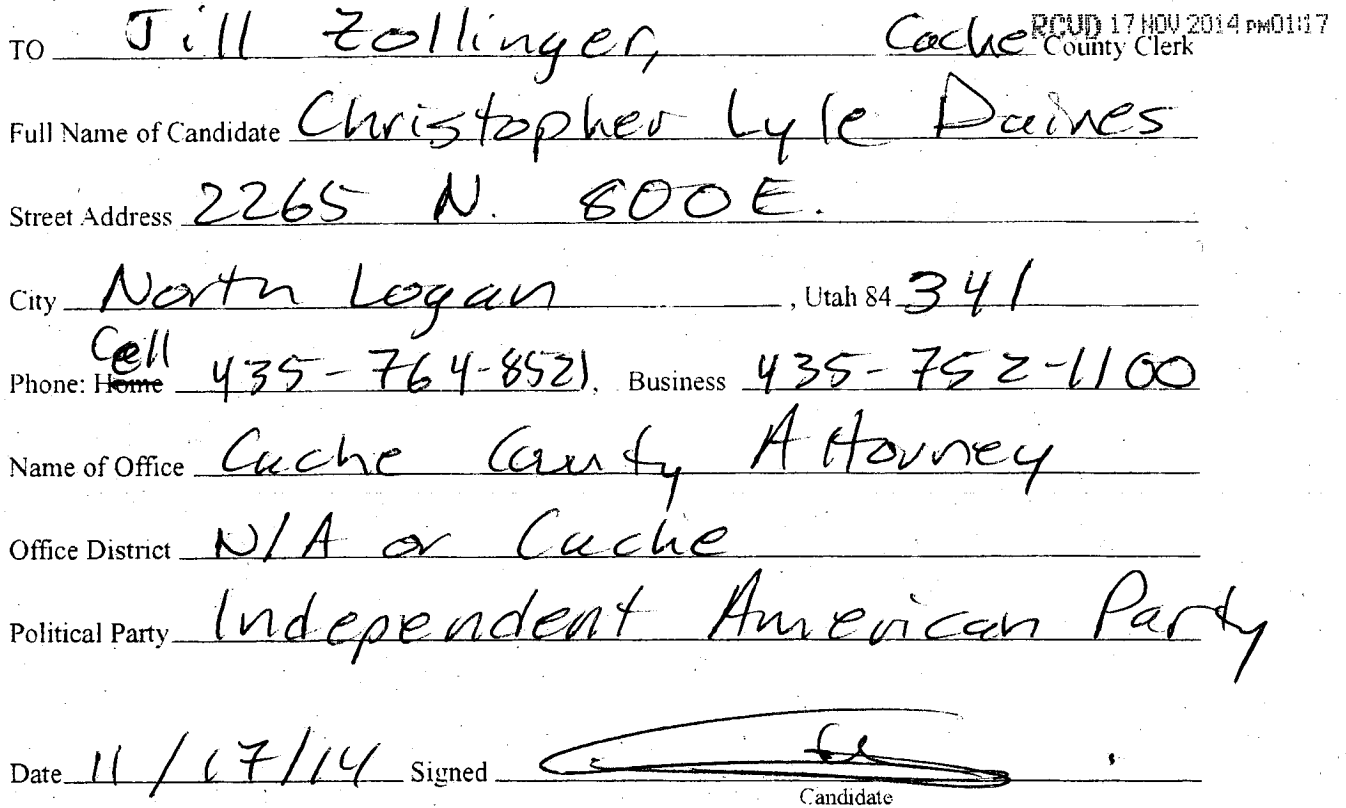 RCVD 17 NOV 2014 PM01:17
TO Jill Zollinger, Cache County Clerk
Full Name of Candidate Christopher Lyle Daines
Street Address 2265 N. 800 E.
City North Logan , Utah 84 341
Cell
Phone: Home 435-764-8521, Business 435-752-1100
Name of Office Cache County Attorney
Office District N/A or Cache
Political Party Independent American Party
Date 11/17/14 Signed
Candidate